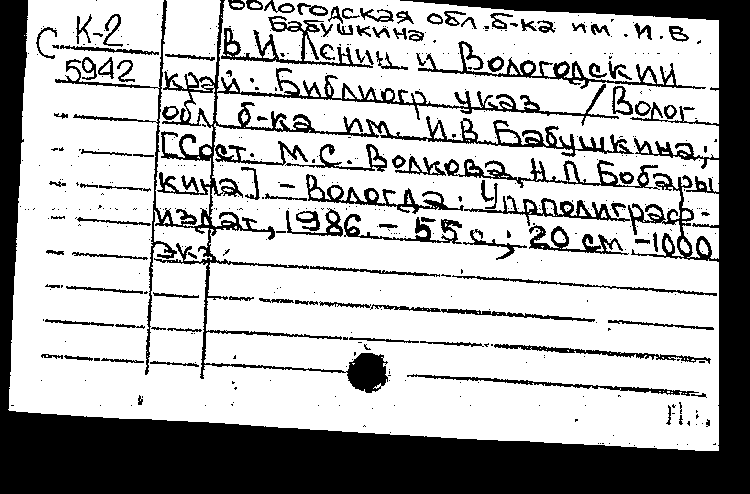 Вологодская обл. б-ка им. И.В.
Бабушкина.
С К-2
5942
В.И. Ленин и Вологодский
край: Библиогр. указ / Волог.
обл. б-ка им. И.В. Бабушкина;
[Сост. М.С. Волкова, Н.П. Бобары
кина]. - Вологда: Упрполиграф-
издат, 1986. - 55 с.; 20 см. - 1000
экз.